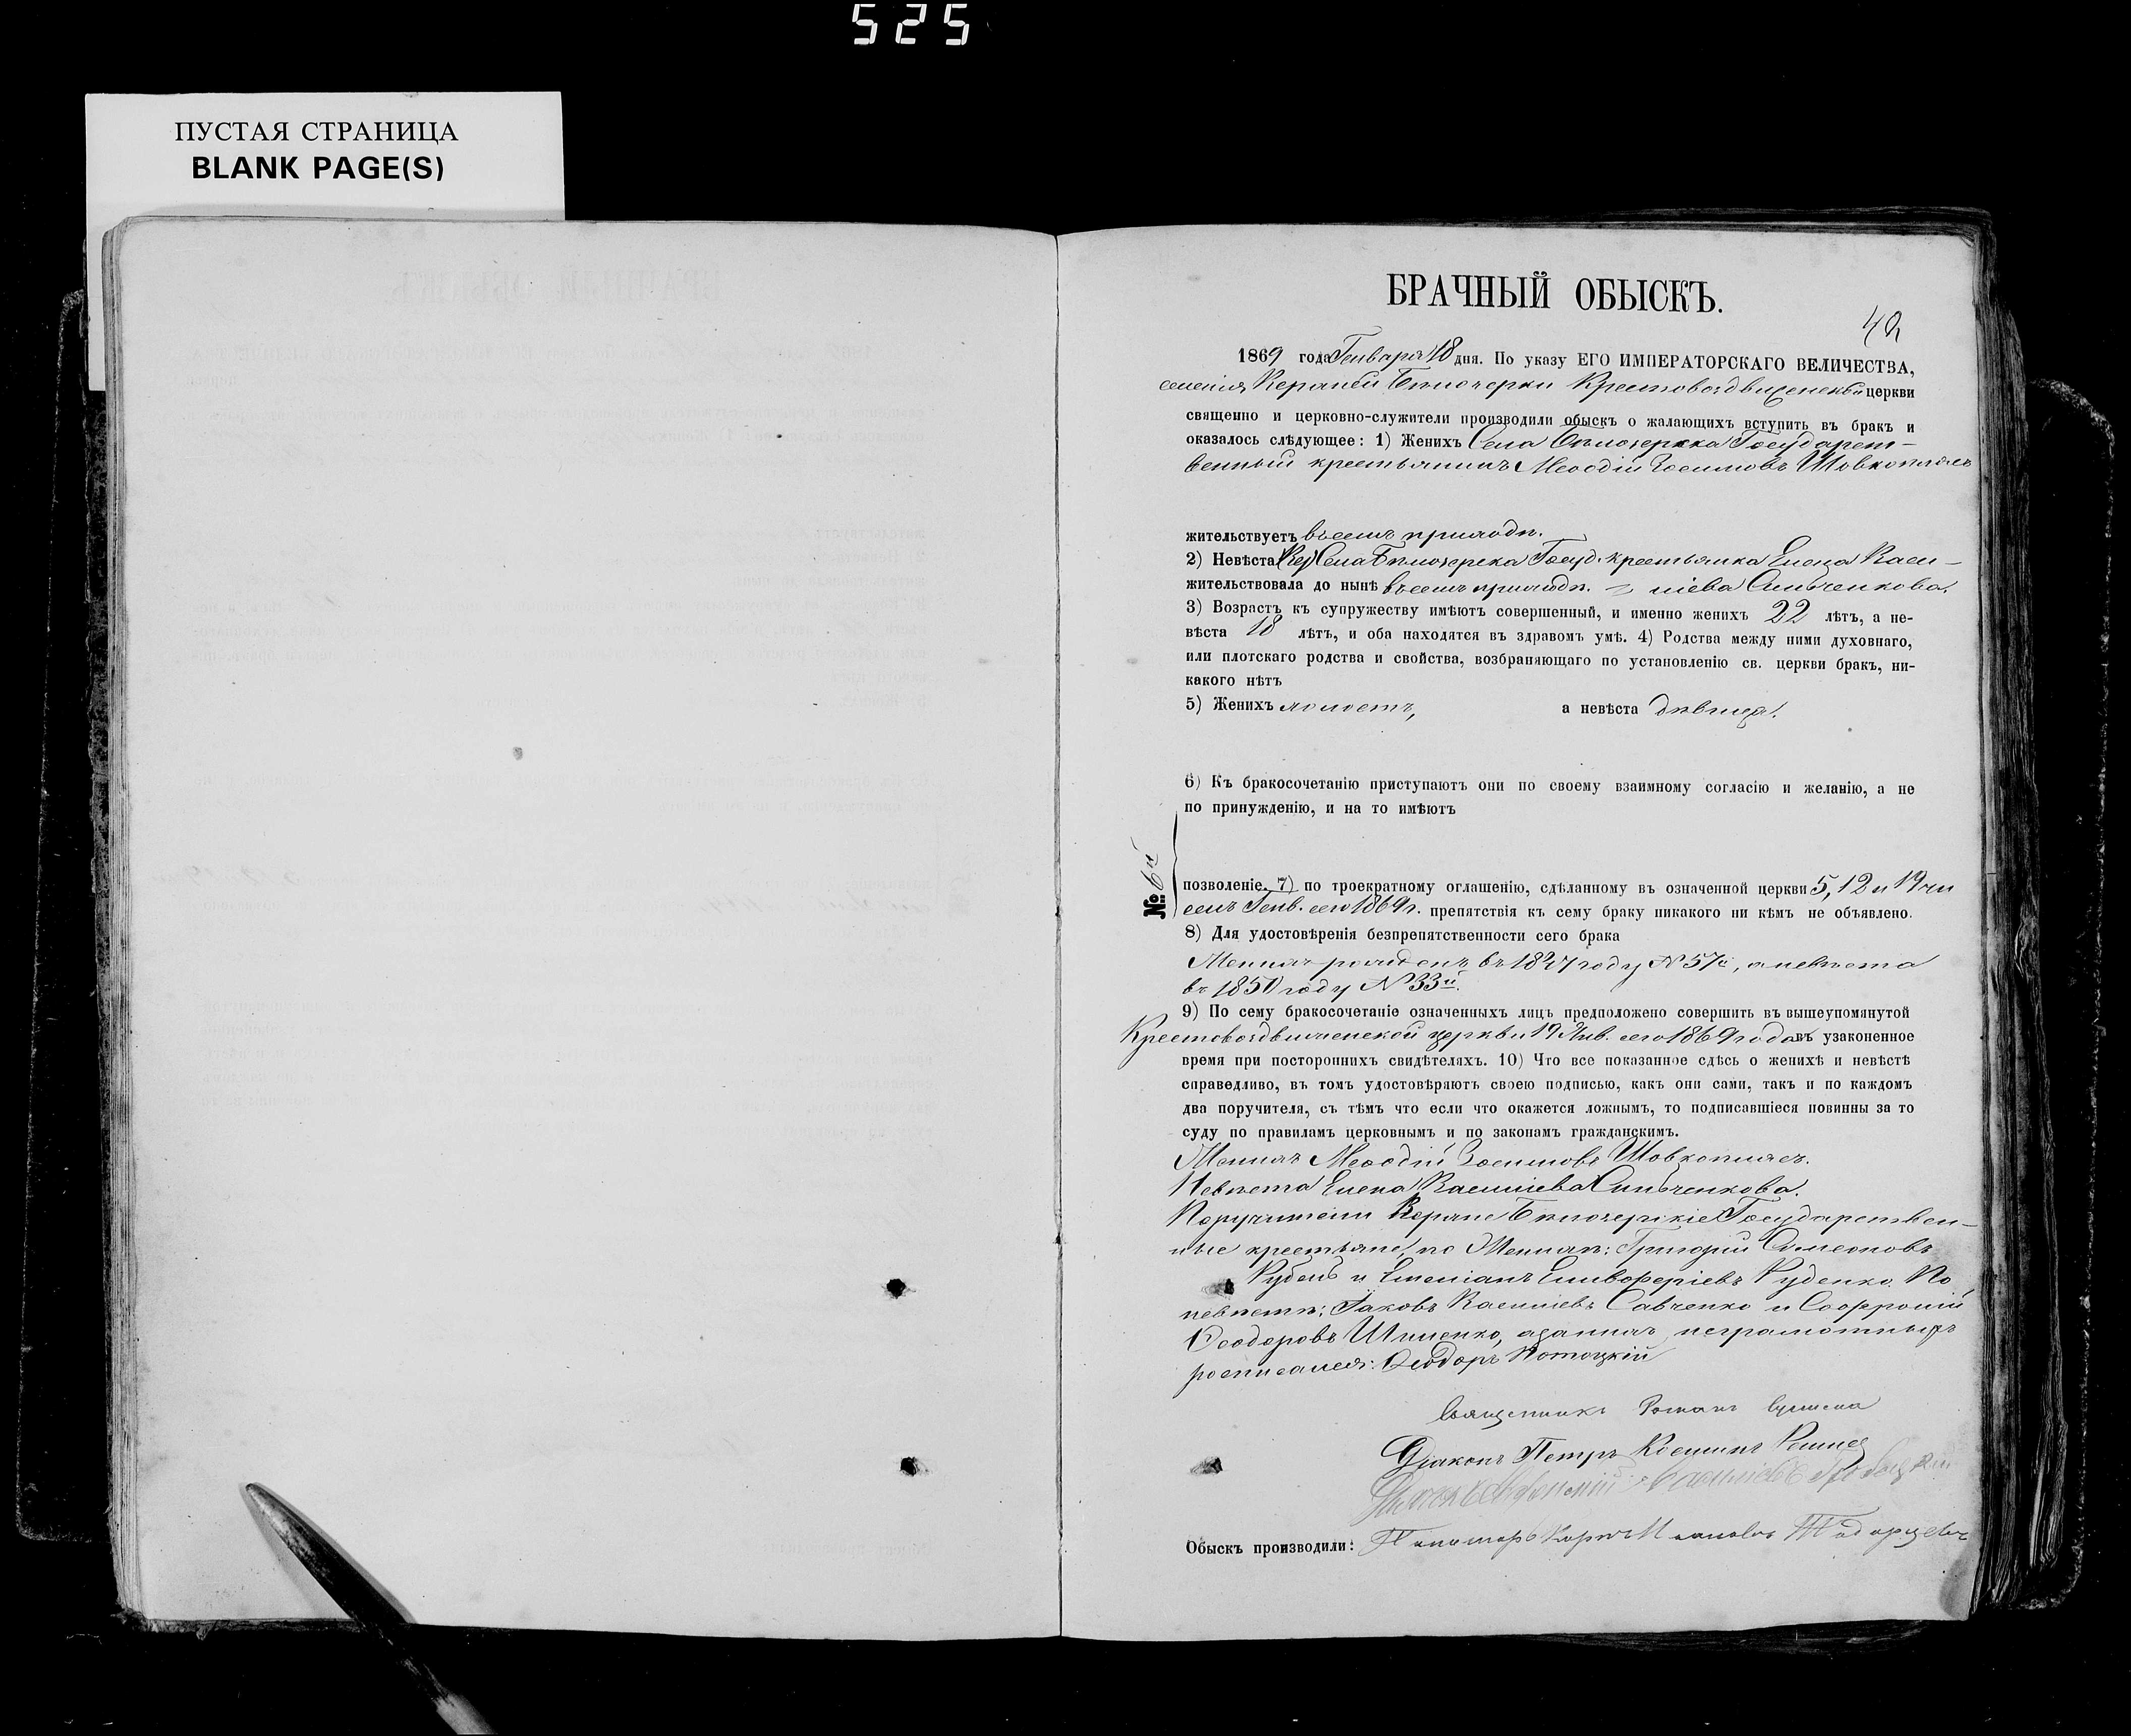 525
ПУСТАЯ СТРАНИЦА
BLANK PAGE(S)
БРАЧНЫЙ ОБЫСКЪ.
1869 года Генваря 18 дня. По указу ЕГО ИМПЕРАТОРСКАГО ВЕЛИЧЕСТВА,
селенія Бѣлозерки Крестовоздвиженской церкви
священно и церковно-служители производили обыскъ о жалающихъ вступить въ бракъ и
оказалось слѣдующее: 1) Женихъ Села Бѣлозерка Государст-
венный крестьянинъ Меѳодій Зосимовъ Шовкоплясъ
жительствуетъ въ семъ приходѣ.
2) Невѣста Села Бѣлозерка Госуд. крестьянка Елена Васи-
жительствовала до нынѣ въ семъ приходѣ. ліева Сильченкова.
3) Возрастъ къ супружеству имѣютъ совершенный, и именно женихъ 22 лѣтъ, а не-
вѣста 18 лѣтъ, и оба находятся въ здравомъ умѣ. 4) Родства между ними духовнаго,
или плотскаго родства и свойства, возбраняющаго по установленію св. церкви бракъ, ни-
какого нѣтъ
5) Женихъ холостъ, а невѣста дѣвица.
6) Къ бракосочетанію приступаютъ они по своему взаимному согласію и желанію, а не
по принужденію, и на то имѣютъ
№ 6й
позволеніе. 7) по троекратному оглашенію, сдѣланному въ означенной церкви 5, 12 и 19 чи
селъ Генв. сего 1869 г. препятствія къ сему браку никакого ни кѣмъ не объявлено.
8) Для удостовѣренія безпрепятственности сего брака
Женихъ рожденъ въ году №57й, а невѣста
въ 1850 году №33й.
9) По сему бракосочетаніе означенныхъ лицъ предположено совершить въ вышеупомянутой
Крестовоздвиженской церкви 19 Янв. сего 1869 года въ узаконенное
время при постороннихъ свидѣтеляхъ. 10) Что все показанное сдѣсь о женихѣ и невѣстѣ
справедливо, въ томъ удостовѣряютъ своею подписью, какъ они сами, такъ и по каждомъ
два поручителя, съ тѣмъ что если что окажется ложнымъ, то подписавшіеся повинны за то
суду по правиламъ церковнымъ и по законамъ гражданскимъ.
Женихъ Меѳодій Зосимовъ Шовкоплясъ.
Невѣста Елена Васильева Сильченкова.
Поручители Бѣлозерскіе Государствен-
ные крестьяне, по Женихѣ: Григорій Симеоновъ
и Емеліанъ Елевферіевъ Руденко. По
невѣстѣ: Іаковъ Васильевъ Савченко и Софроній
Ѳеодоровъ неграмотныхъ
росписался: Ѳеодоръ Потоцкій
Священникъ Романъ
Діаконъ Петръ
Обыскъ производили: Пономарь